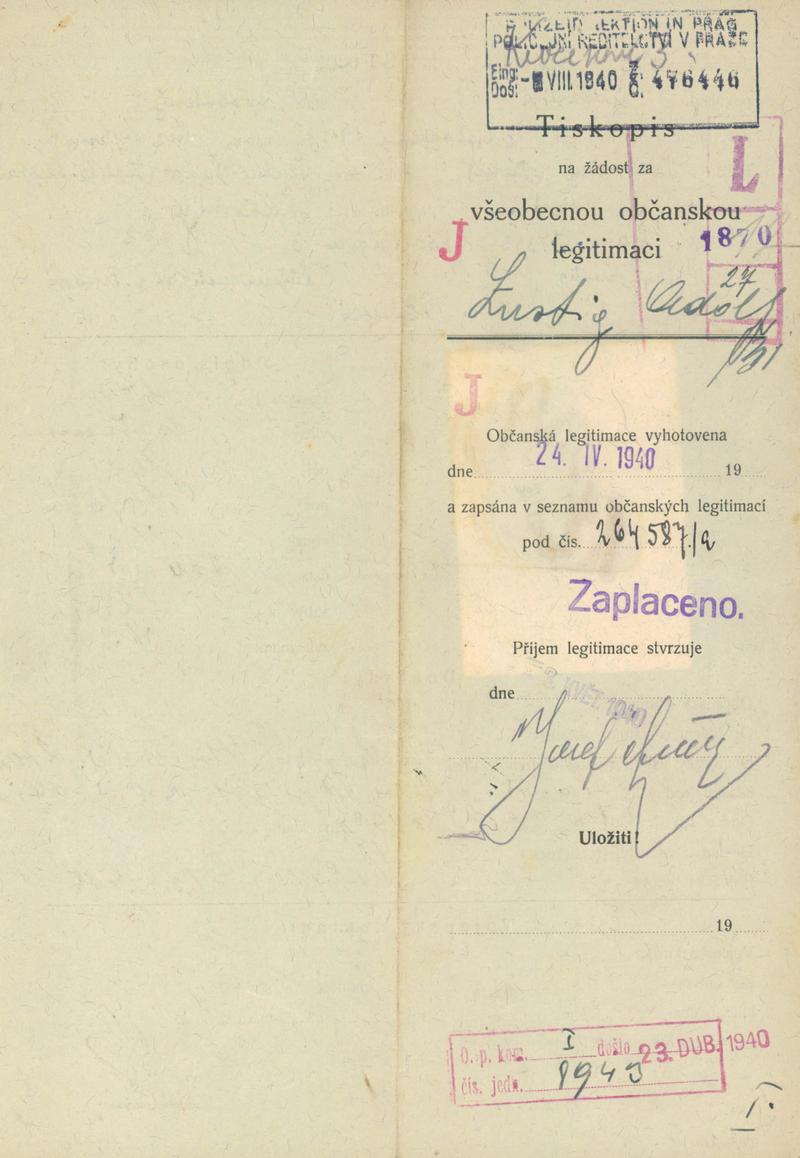 POLIZEIDIREKTION IN PRAG
POLICEJNÍ ŘEDITELSTVÍ V PRAZE
Eing:
Doš: VIII.1940 Č. 476446
Tiskopis
na žádost za
L
všeobecnou občanskou
J legitimaci 1870
27
Lustig Adolf
/31
J
Občanská legitimace vyhotovena
24. IV. 1940
dne 19
a zapsána v seznamu občanských legitimací
pod čís. 264587/a
Zaplaceno.
Příjem legitimace stvrzuje
dne KVĚT. 1940
Josef
Uložiti!
19
O. p. kom. I došlo 23. DUB. 1940
čís. jedn. 1943
I.